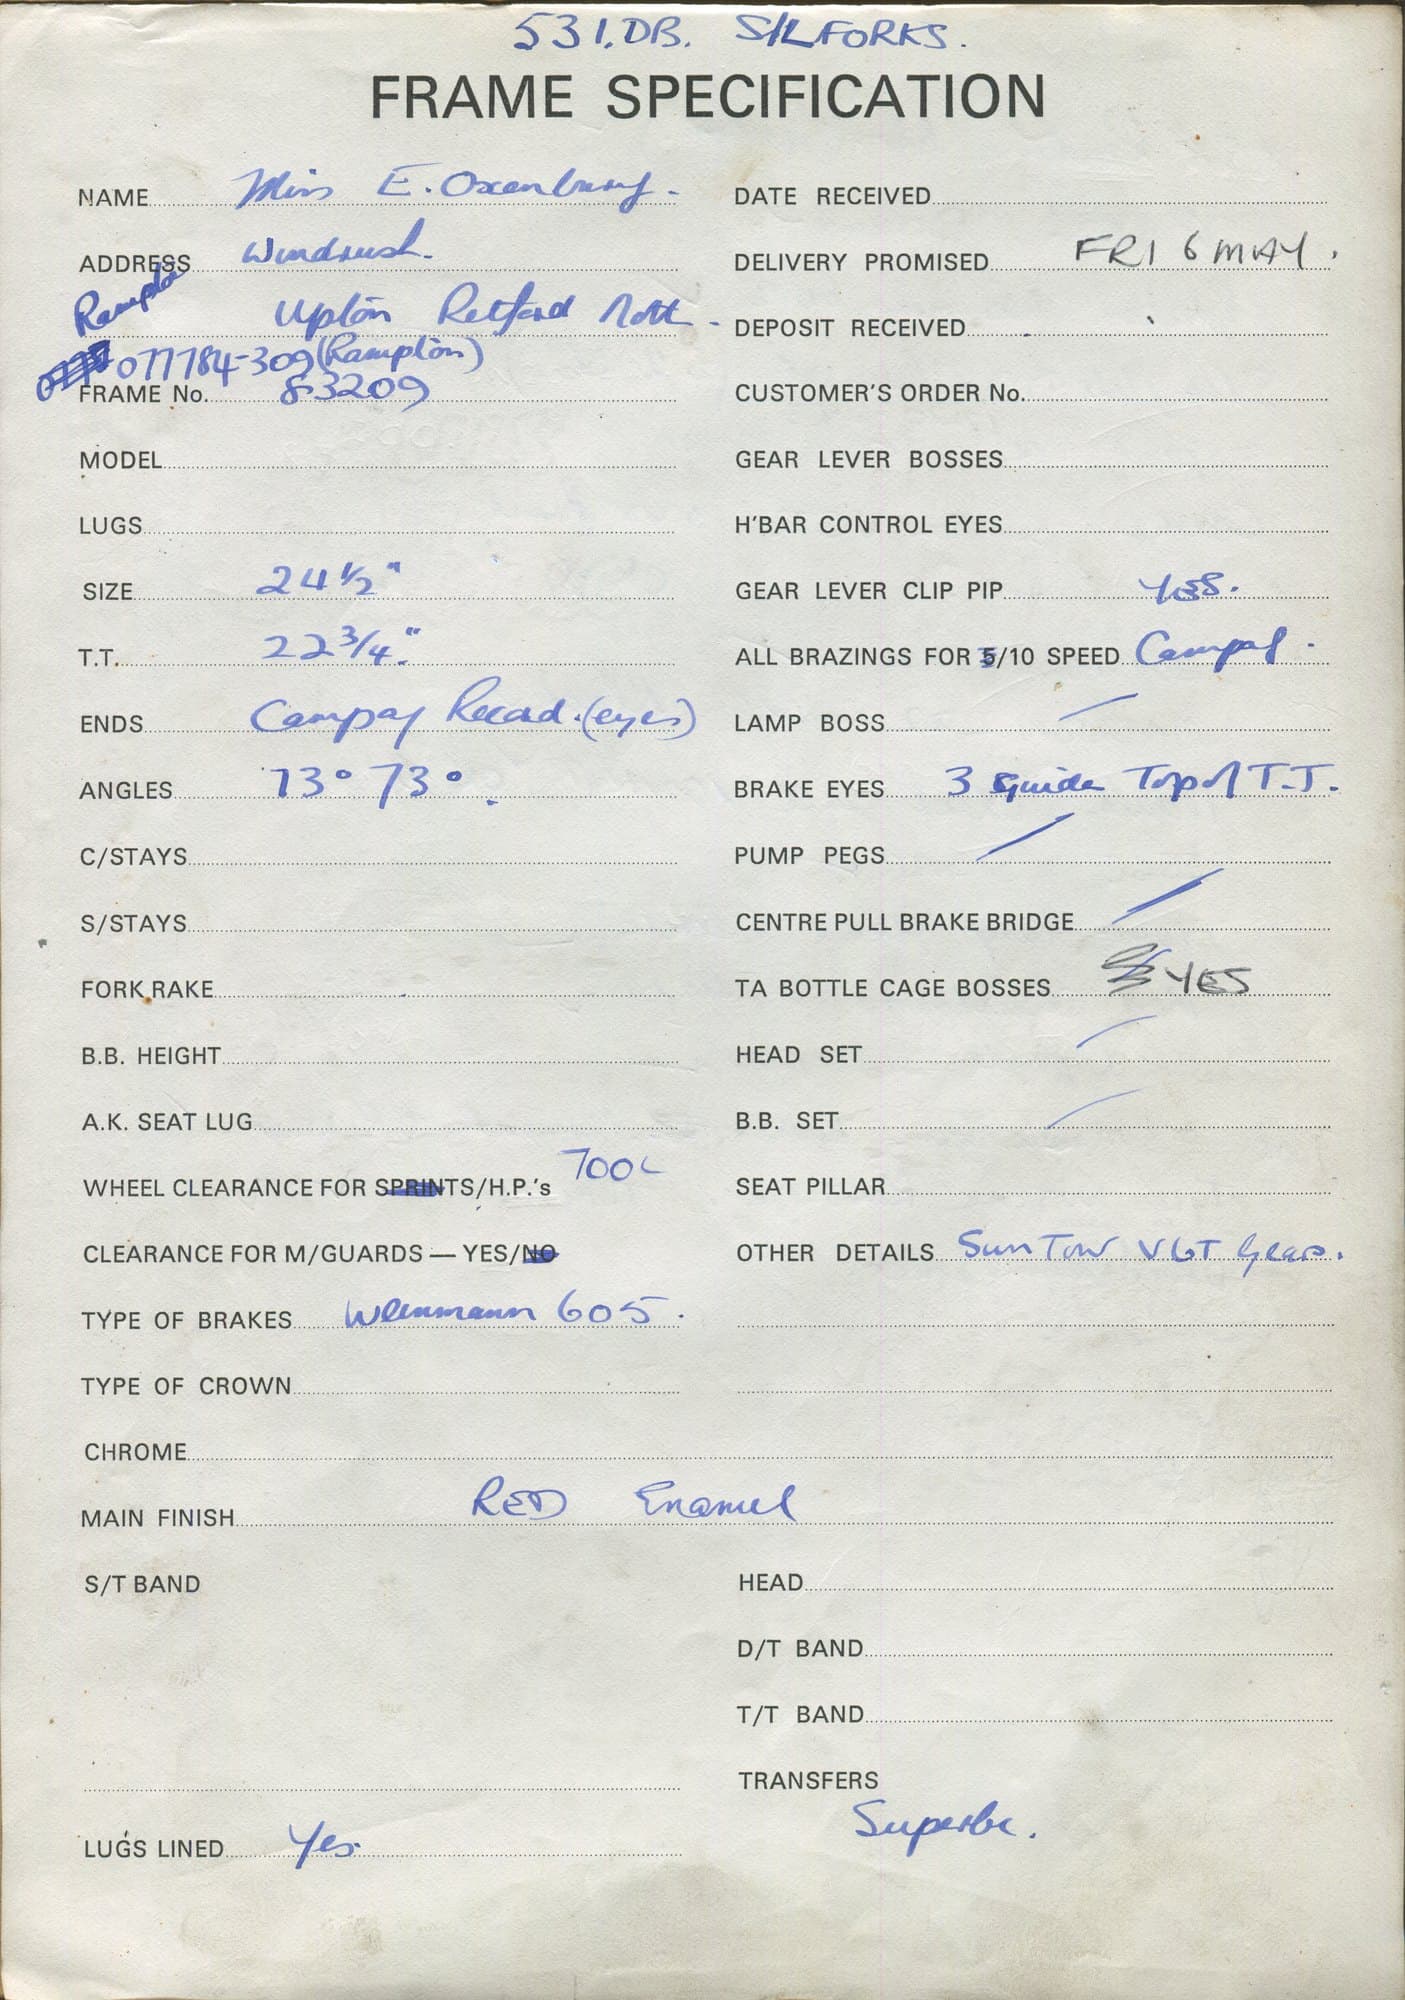 531.DB. S/L FORKS.
FRAME SPECIFICATION
NAME Miss E. Oxenbury.
ADDRESS Windrush.
Rampton
Upton Retford Nott
077784-309 (Rampton)
FRAME No. 83209
MODEL
LUGS
SIZE 24 1/2"
T.T. 22 3/4"
ENDS Campag Record. (eyes)
ANGLES 73° 73°.
C/STAYS
S/STAYS
FORK RAKE
B.B. HEIGHT
A.K. SEAT LUG
WHEEL CLEARANCE FOR SPRINTS/H.P.'s 700c
CLEARANCE FOR M/GUARDS — YES/NO
TYPE OF BRAKES Weinmann 605.
TYPE OF CROWN
DATE RECEIVED
DELIVERY PROMISED FRI 6 MAY.
DEPOSIT RECEIVED
CUSTOMER'S ORDER No.
GEAR LEVER BOSSES
H'BAR CONTROL EYES
GEAR LEVER CLIP PIP YES.
ALL BRAZINGS FOR 5/10 SPEED Campag.
LAMP BOSS
BRAKE EYES 3 Guides Top of T.T.
PUMP PEGS
CENTRE PULL BRAKE BRIDGE
TA BOTTLE CAGE BOSSES YES
HEAD SET
B.B. SET
SEAT PILLAR
OTHER DETAILS SunTour VGT Gears.
CHROME
MAIN FINISH RED Enamel
S/T BAND
LUGS LINED Yes.
HEAD
D/T BAND
T/T BAND
TRANSFERS
Superbe.